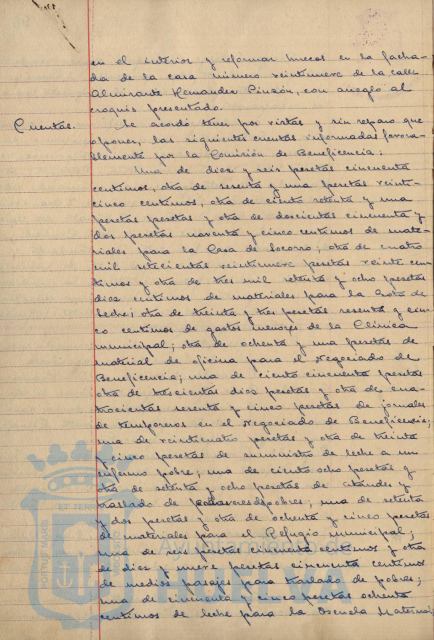 en el interior y reformar huecos en la facha-
da de la casa número veintinueve de la calle
Almirante Hernandez Pinzón, con arreglo al
croquis presentado.
Cuentas. Se acordó tener por vistas y sin reparo que
oponer, las siguientes cuentas informadas favora-
blemente por la Comisión de Beneficencia:
Una de diez y seis pesetas cincuenta
centimos, otra de sesenta y una pesetas veinti-
cinco centimos, otra de ciento setenta y una
pesetas pesetas y otra de doscientas cincuenta y
dos pesetas noventa y cinco centimos de mate-
riales para la Casa de Socorro; otra de cuatro
mil setecientas veintinueve pesetas veinte cen-
timos y otra de tres mil setenta y ocho pesetas
diez centimos de materiales para la Gota de
Leche; otra de treinta y tres pesetas sesenta y cin-
co centimos de gastos menores de la Clinica
municipal; otra de ochenta y una pesetas de
material de oficina para el Negociado de
Beneficencia; una de ciento cincuenta pesetas
otra de trescientas diez pesetas y otra de cua-
trocientas sesenta y cinco pesetas de jornales
de temporeros en el Negociado de Beneficencia;
una de veinticuatro pesetas y otra de treinta
y cinco pesetas de suministro de leche a un
enfermo pobre; una de ciento ocho pesetas y
otra de setenta y ocho pesetas de ataudes y
traslado de cadaveres de pobres; una de setenta
y dos pesetas y otra de ochenta y cinco pesetas
de materiales para el Refugio municipal;
una de seis pesetas cincuenta centimos y otra
de diez y nueve pesetas cincuenta centimos
de medios pasajes para traslado de pobres;
una de cincuenta y cinco pesetas ochenta
centimos de leche para la Escuela Maternal